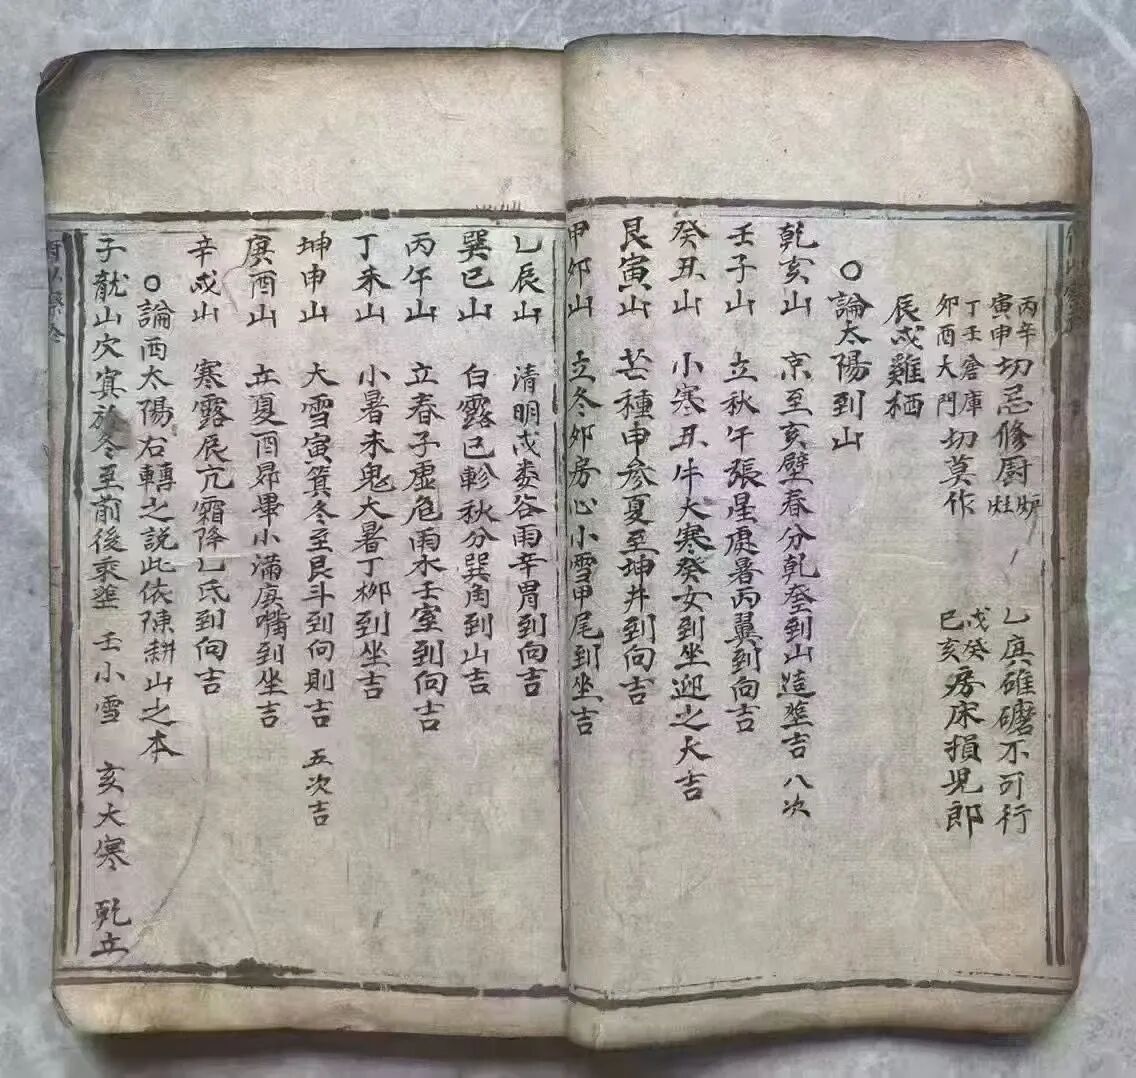 丙辛寅申切忌修厨炉灶 乙庚碓磨不可行
丁壬倉庫卯酉大門切莫作 戊癸巳亥房床損児郎
辰戌雞栖
○論太陽到山
乾亥山 京至亥壁春分乾奎到山造塟吉 八次
壬子山 立秋午張星處暑丙翼到向吉
癸丑山 小寒丑牛大寒癸女到坐迎之大吉
艮寅山 芒種申参夏至坤井到向吉
甲卯山 立冬卯房心小雪甲尾到坐吉
乙辰山 清明戌娄谷雨辛胃到向吉
巽巳山 白露巳軫秋分巽角到山吉
丙午山 立春子虚危雨水壬室到向吉
丁未山 小暑未鬼大暑丁柳到坐吉
坤申山 大雪寅箕冬至艮斗到向則吉 五次吉
庚酉山 立夏酉昴畢小滿庚嘴到坐吉
辛戌山 寒露辰亢霜降乙氐到向吉
○論西太陽右轉之説此依陳耕山之本
子龍山穴寅於冬至前後乘塟 壬小雪 亥大寒 乾立